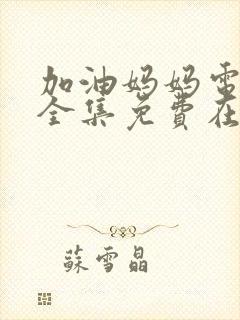 加油妈妈电
全集免費在
蘇雪晶